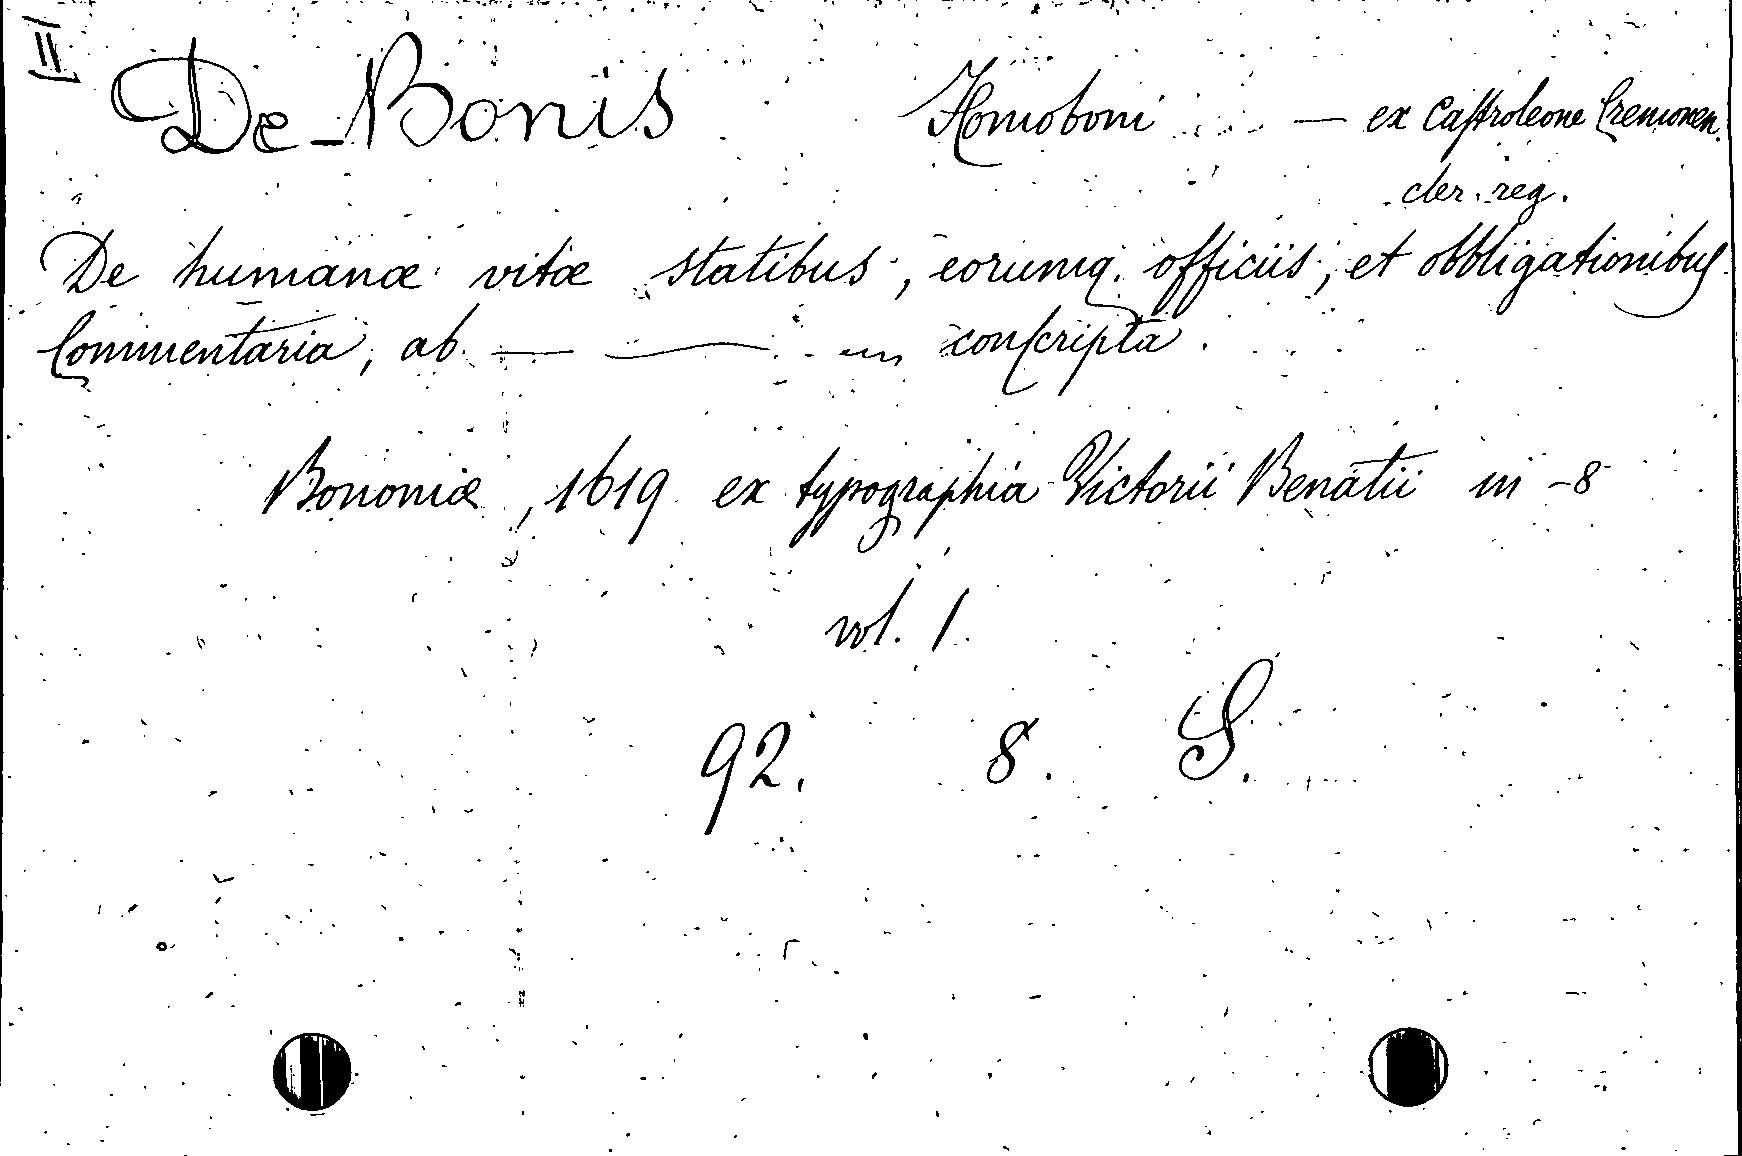 II
De-Bonis Homoboni — ex Castroleone Cremonen.
cler. reg.
De humanæ vitæ statibus, eorumq. officiis, et obbligationibus
Commentaria, ab — — conscripta.
Bononiæ, 1619 ex typographia Victorii Benatii in-8
vol. 1.
92. 8. S.